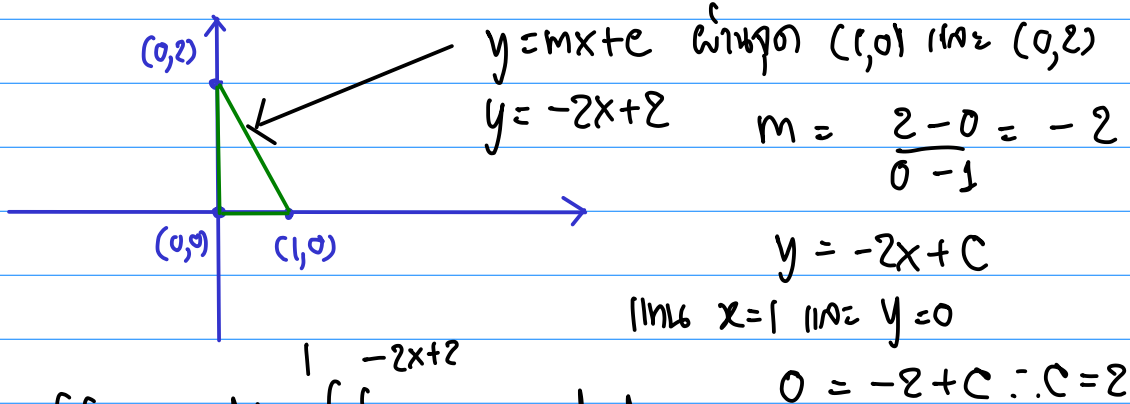 (0,2)
y = mx+c ผ่านจุด (1,0) และ (0,2)
y = -2x+2
m = 2-0 / 0-1 = -2
(0,0) (1,0)
y = -2x+C
แทน x=1 และ y=0
0 = -2+C ∴ C=2
1 -2x+2
∫∫